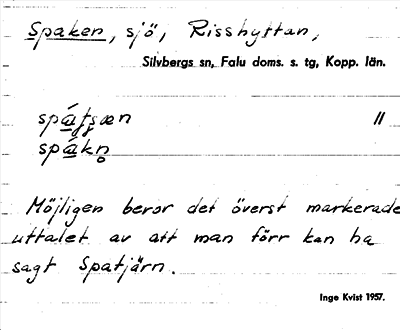 Spaken, sjö, Risshyttan,
Silvbergs sn, Falu doms. s. tg, Kopp. län.
spátsæn "
spákn̥
Möjligen beror det överst markerade
uttalet av att man förr kan ha
sagt Spatjärn.
Inge Kvist 1957.